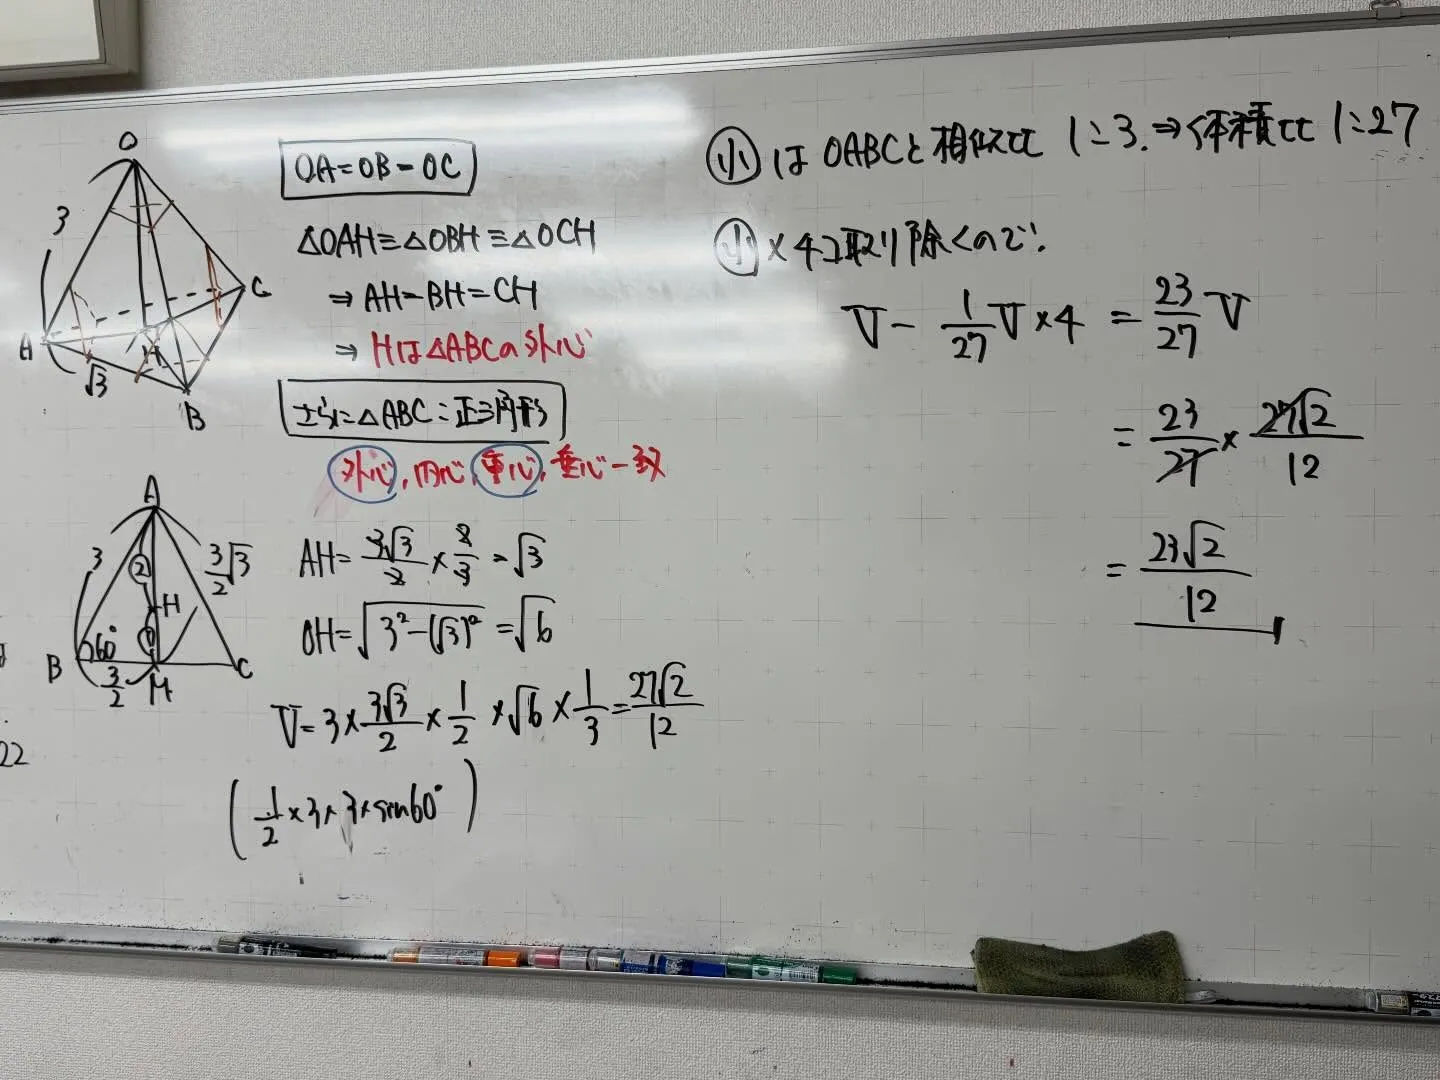 O
3
A
√3
H
B
C
OA=OB=OC
△OAH≡△OBH≡△OCH
⇒ AH=BH=CH
⇒ Hは△ABCの外心
さらに△ABC:正三角形
外心, 内心, 重心, 垂心一致
A
3
②
3/2√3
H
①
60°
B
3/2
M
C
AH= 3√3/2 × 2/3 = √3
OH= √3²-(√3)² = √6
V= 3 × 3√3/2 × 1/2 × √6 × 1/3 = 27√2/12
( 1/2 × 3 × 3 × sin60° )
22
小 は OABCと相似比 1:3. ⇒ 体積比 1:27
小 × 4コ取り除くので.
V - 1/27 V × 4 = 23/27 V
= 23/27 × 27√2/12
= 23√2/12